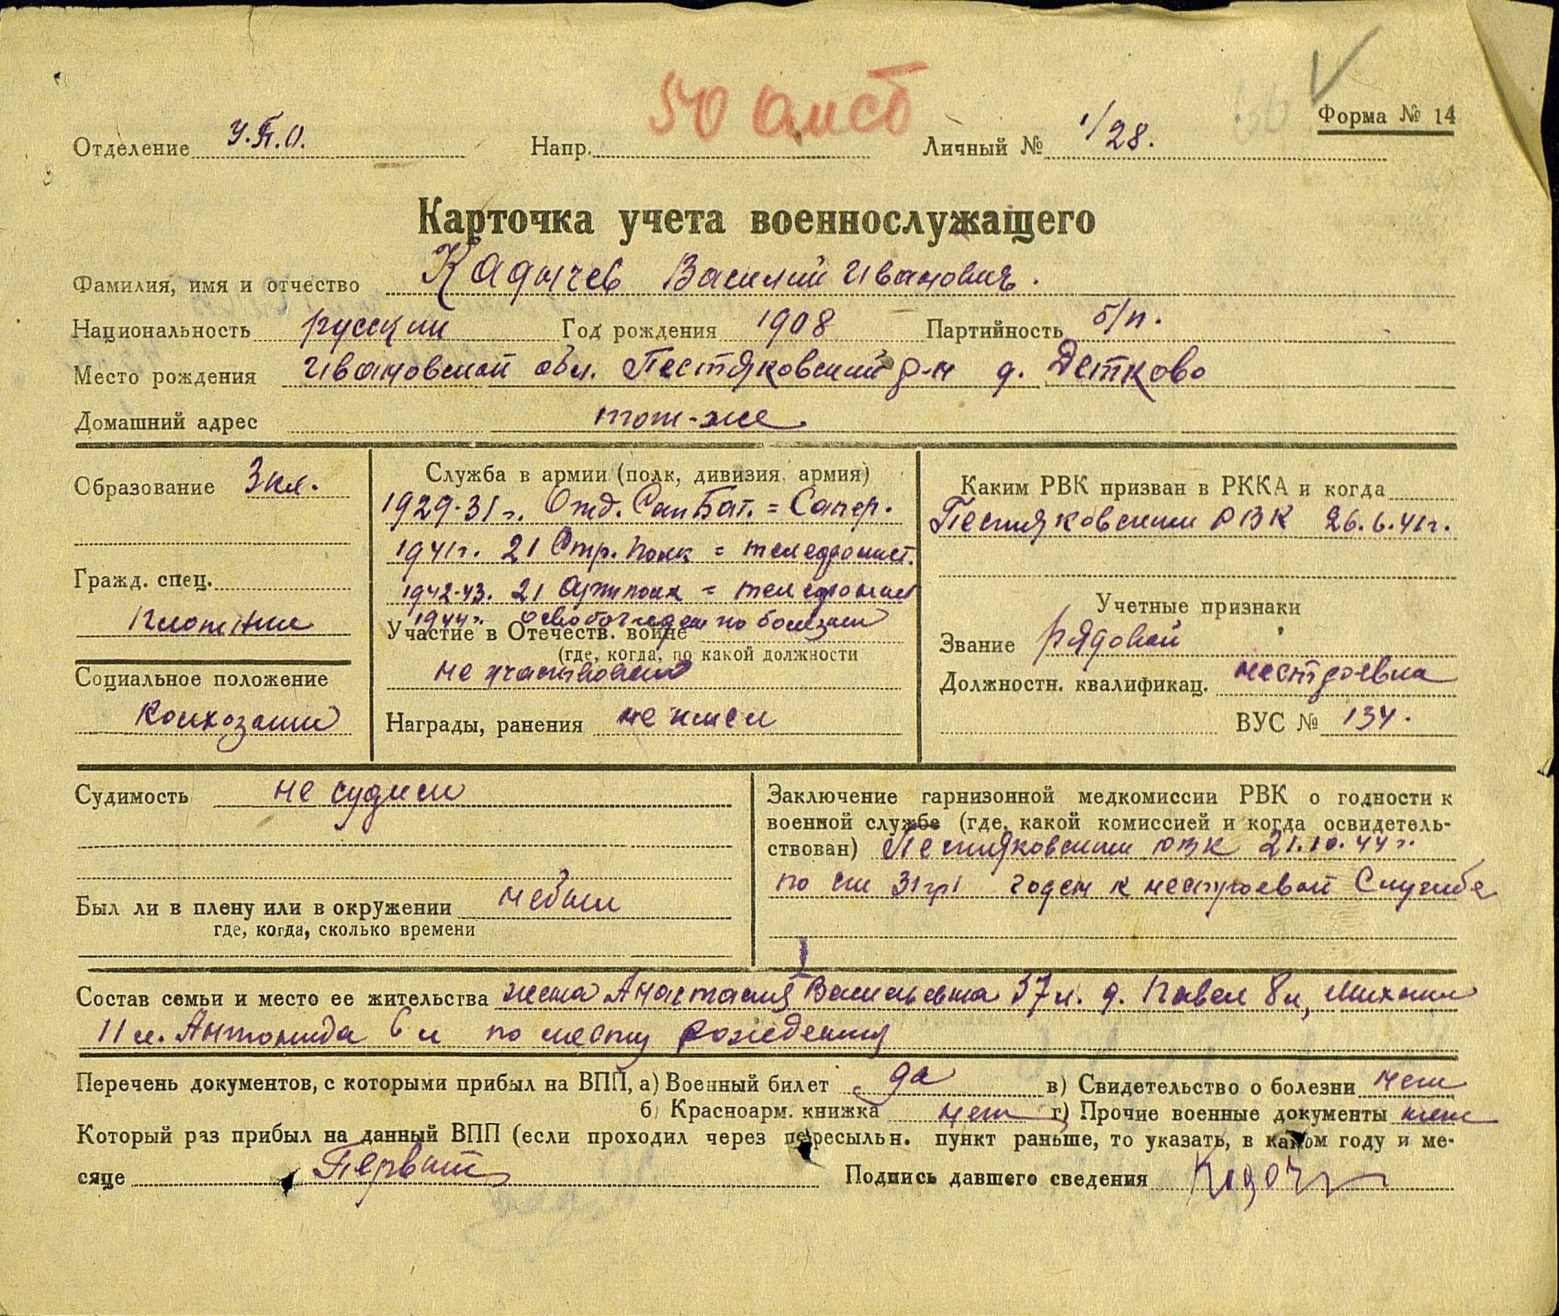 50 омсб
Форма № 14
Отделение У.П.О. Напр. Личный № 1/28.
Карточка учета военнослужащего
Фамилия, имя и отчество Кадычев Василий Иванович.
Национальность русский Год рождения 1908 Партийность б/п.
Место рождения Ивановской обл. Пестяковский р-н д. Детково
Домашний адрес тот-же
Образование 3 кл.
Гражд. спец.
плотник
Социальное положение
колхозник
Служба в армии (полк, дивизия, армия)
1929-31 г. Отд. Сап Бат. = Сапер.
1941г. 21 Стр. Полк = телефонист.
1942-43. 21 Артполк = телефонист
1944г. освобожден по болезни
Участие в Отечеств. войне
(где, когда, по какой должности
не участвовал
Награды, ранения не имел
Каким РВК призван в РККА и когда
Пестяковским РВК 26.6.41г.
Учетные признаки
Звание рядовой
Должностн. квалификац. нестроевик
ВУС № 134.
Судимость не судим
Был ли в плену или в окружении не был
где, когда, сколько времени
Заключение гарнизонной медкомиссии РВК о годности к
военной службе (где, какой комиссией и когда освидетель-
ствован) Пестяковским РВК 21.10.44 г.
по ст 31 гр1 годен к нестроевой Службе
Состав семьи и место ее жительства жена Анастасия Васильевна 37 л. д. Павел 8 л, Михаил
11 л. Антонида 6 л по месту рождения
Перечень документов, с которыми прибыл на ВПП, а) Военный билет да в) Свидетельство о болезни нет
б) Красноарм. книжка нет г) Прочие военные документы нет
Который раз прибыл на данный ВПП (если проходил через пересыльн. пункт раньше, то указать, в каком году и ме-
сяце Первый Подпись давшего сведения